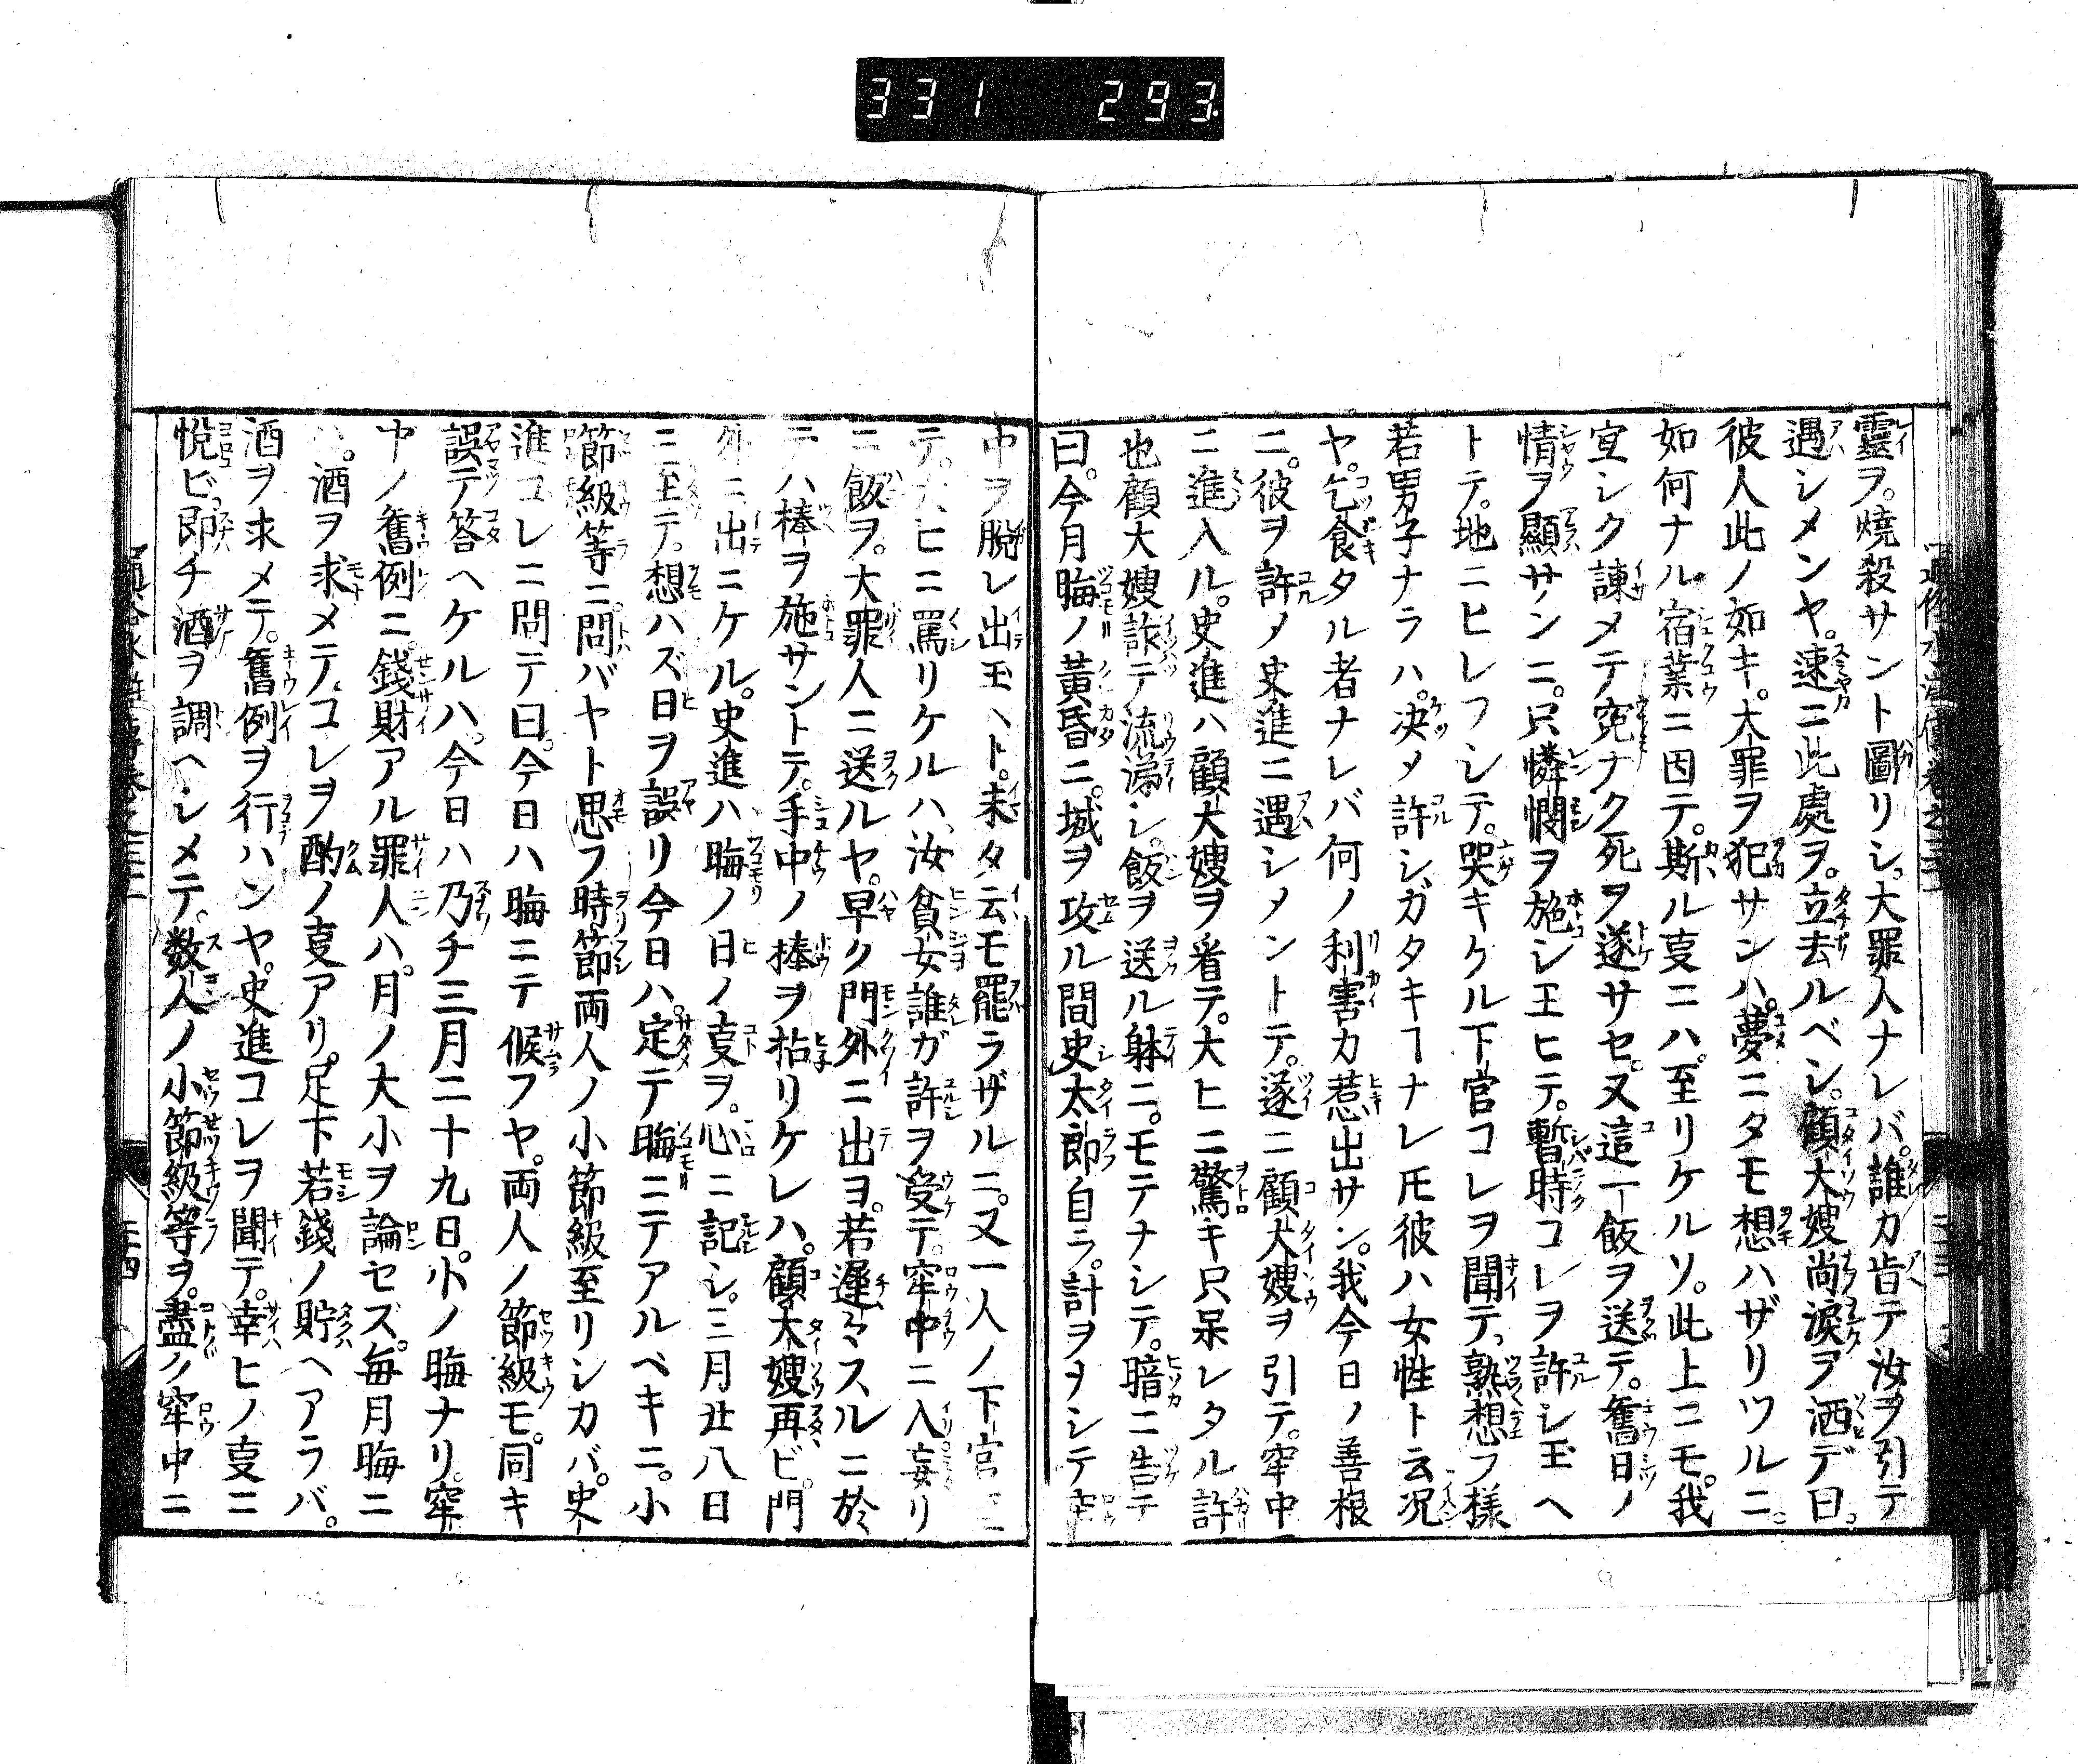 331 293
靈ヲ。燒殺サント圖リシ。大罪人ナレバ。誰カ肯テ汝ヲ引テ
遇シメンヤ。速ニ此處ヲ。立去ルベシ。顧大嫂尚淚ヲ洒デ曰。
彼人此ノ如キ。大罪ヲ犯サンハ。夢ニタモ想ハザリツルニ。
如何ナル宿業ニ因テ。斯ル叓ニハ。至リケルソ。此上ニモ。我
宜シク諌メテ寃ナク死ヲ遂サセ。又這一飯ヲ送テ。舊日ノ
情ヲ顯サンニ。只憐憫ヲ施シ玉ヒテ。暫時コレヲ許シ玉ヘ
トテ。地ニヒレフシテ。哭キケル下官コレヲ聞テ。熟想フ樣
若男子ナラハ。决メ許シガタキヿナレ𪜈彼ハ女性ト云况
ヤ。乞食タル者ナレバ何ノ利害カ惹出サン。我今日ノ善根
ニ。彼ヲ許メ史進ニ遇シメントテ。遂ニ顧大嫂ヲ引テ。牢中
ニ進入ル。史進ハ顧大嫂ヲ看テ。大ヒニ驚キ只呆レタル許
也顧大嫂詐テ流涕シ。飯ヲ送ル躰ニ。モテナシテ。暗ニ告テ
曰。今月晦ノ黃昏ニ。城ヲ攻ル間史太郎自ラ。計ヲヲシテ牢
中ヲ脫レ出玉ヘト。未タ云モ罷ラザルニ。又一人ノ下官
テ。大ヒニ罵リケルハ、汝貧女誰ガ許ヲ受テ。牢中ニ入妄リ
ニ飯ヲ。大罪人ニ送ルヤ。早ク門外ニ出ヨ。若遲々スルニ於
テハ棒ヲ施サントテ。手中ノ捧ヲ拈リケレハ。顧大嫂再ビ。門
外ニ出ニケル。史進ハ晦ノ日ノ叓ヲ。心ニ記シ。三月廿八日
ニ至テ。想ハズ日ヲ誤リ今日ハ。定テ晦ニテアルベキニ。小
節級等ニ問バヤト思フ時節両人ノ小節級至リシカバ。史
進コレニ問テ曰。今日ハ晦ニテ候フヤ。両人ノ節級モ。同キ
誤テ答ヘケルハ。今日ハ乃チ三月二十九日。小ノ晦ナリ。牢
中ノ舊例ニ。錢財アル罪人ハ。月ノ大小ヲ論セズ。毎月晦ニ
ハ。酒ヲ求メテ。コレヲ酌ノ叓アリ。足下若錢ノ貯ヘアラバ。
酒ヲ求メテ。舊例ヲ行ハンヤ。史進コレヲ聞テ。幸ヒノ叓ニ
悅ビ。即チ酒ヲ調ヘシメテ。数人ノ小節級等ヲ。盡ク牢中ニ